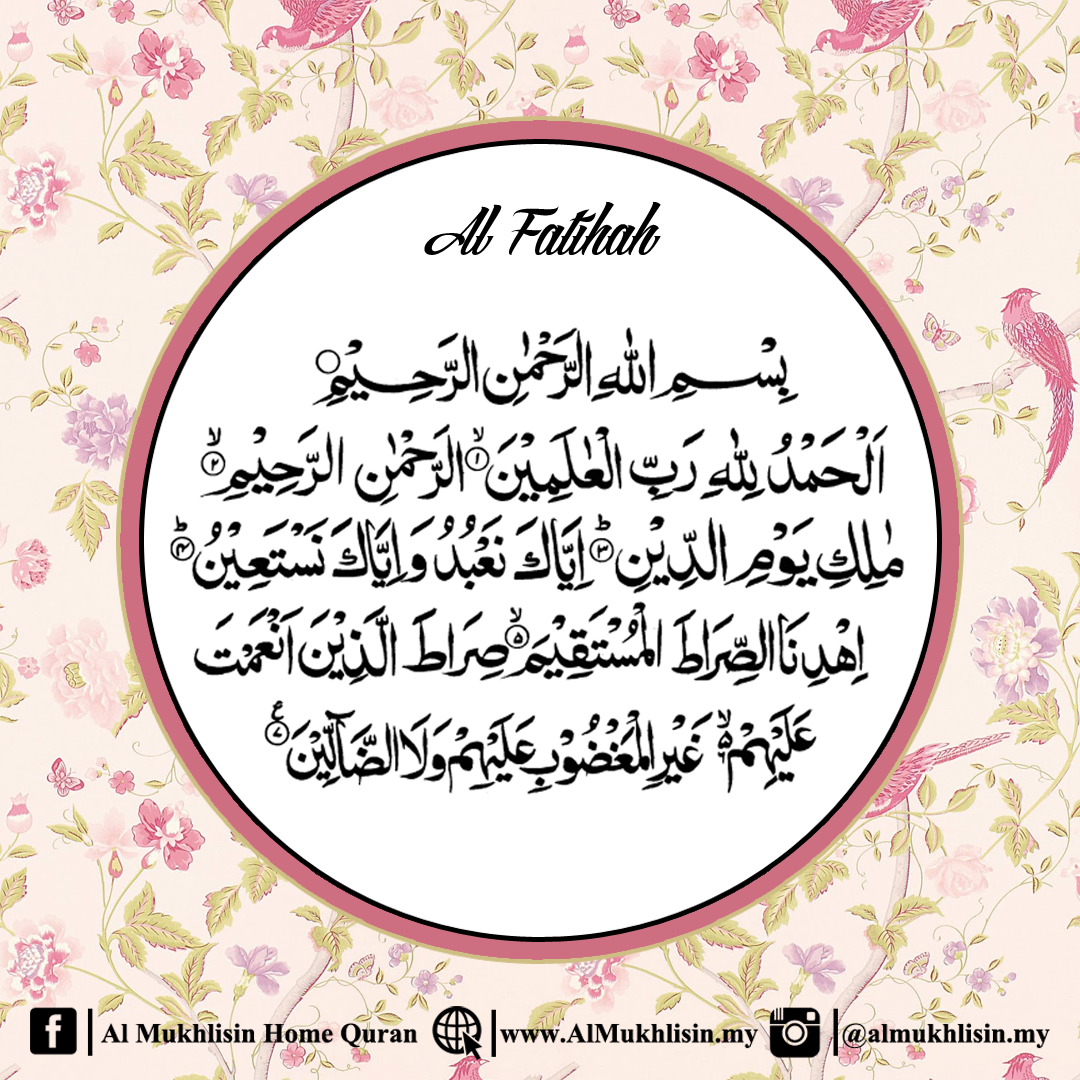 Al Fatihah
بِسْمِ اللهِ الرَّحْمٰنِ الرَّحِيْمِ ○
اَلْحَمْدُ لِلّٰهِ رَبِّ الْعٰلَمِيْنَ ۙ﴿۱﴾ الرَّحْمٰنِ الرَّحِيْمِ ۙ﴿۲﴾
مٰلِكِ يَوْمِ الدِّيْنِ ؕ﴿۳﴾ اِيَّاكَ نَعْبُدُ وَاِيَّاكَ نَسْتَعِيْنُ ؕ﴿۴﴾
اِهْدِنَا الصِّرَاطَ الْمُسْتَقِيْمَ ۙ﴿۵﴾ صِرَاطَ الَّذِيْنَ اَنْعَمْتَ
عَلَيْهِمْ ۙ۬ غَيْرِ الْمَغْضُوْبِ عَلَيْهِمْ وَلَا الضَّآلِّيْنَ ﴿۷﴾ ع
f | Al Mukhlisin Home Quran | www.AlMukhlisin.my | @almukhlisin.my